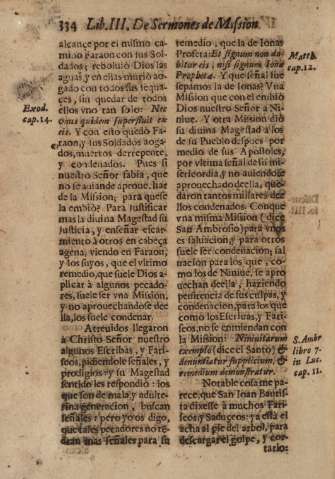 334 Lib. III. De Sermones de Mission.
alcançe por el mismo ca-
mino Faraon con sus Sol-
dados; rebolviò Dios las
aguas, y en ellas murió ao-
gado con todos sus sequa-
ces, sin quedar de todos
ellos vno tan solo: Nec
vnus quidem superfuit ex
eis. Y con esto quedò Fa-
raon, y sus Soldados aoga-
dos, muertos, derrepente,
y condenados. Pues si
nuestro Señor sabia, que
no se auiande aproue.har
de la Mission, para quese
la embiò? Para justificar
mas la divina Magestad su
Justicia, y enseñar escar-
miento à otros en cabeça
agena, viendo en Faraon,
y los suyos, que el vltimo
remedio, que suele Dios a-
plicar à algunos pecado-
res, suele ser vna Mission,
y no aprouechandose de-
lla, los suele condenar.
Atreuidos llegaron
à Christo Señor nuestro
algunos Escribas, y Fari-
seos, pidiendole señales, y
prodigios: y su Magestad
sentido les respondiò: los
que son de mala, y adulte-
rina generacion, buscan
señales: pero yo os digo,
que tales pecadores no re-
dran mas señales para su
Exod.
cap. 14.
remedio, que la de Ionas
Profeta: Et signum non da-
bitur eis, nisi signum Iona
Prophetæ. Y que señal fue
sepamos la de Ionas? Vna
Mission que con el embiò
Dios nuestro Señor a Ni-
niue. Y otra Mission diò
su divina Magestad a los
de su Pueblo despues por
medio de sus Apostoles,
por vltima señal de su mi-
sericordia, y no auiendose
aprouechado della, que-
daron tantos millares de-
llos condenados. Conque
vna misma Mission (dice
San Ambrosio) para vnos
es saluacion, y para otros
suele ser condenacion; sal
uacion para los que, co-
mo los de Niniue, se apro
uechan della, haziendo
penitencia de sus culpas, y
condenacion, para los que
como los Escribas, y Fari-
seos, no se enmiendan con
la Mission: Niniuitarum
exemplo (dice el Santo) &
denuntiatur supplicium, &
remedium demonstratur.
Notable cosa me pa-
rece, que San Iuan Bautis-
ta dixesse à muchos Fari-
seos, y Saduceos: ya està el
acha al pie del arbol, para
descargar el golpe, y cor-
tarlo:
Matth.
cap. 12.
S. Ambr
libro 7.
in Luc.
cap. 11.